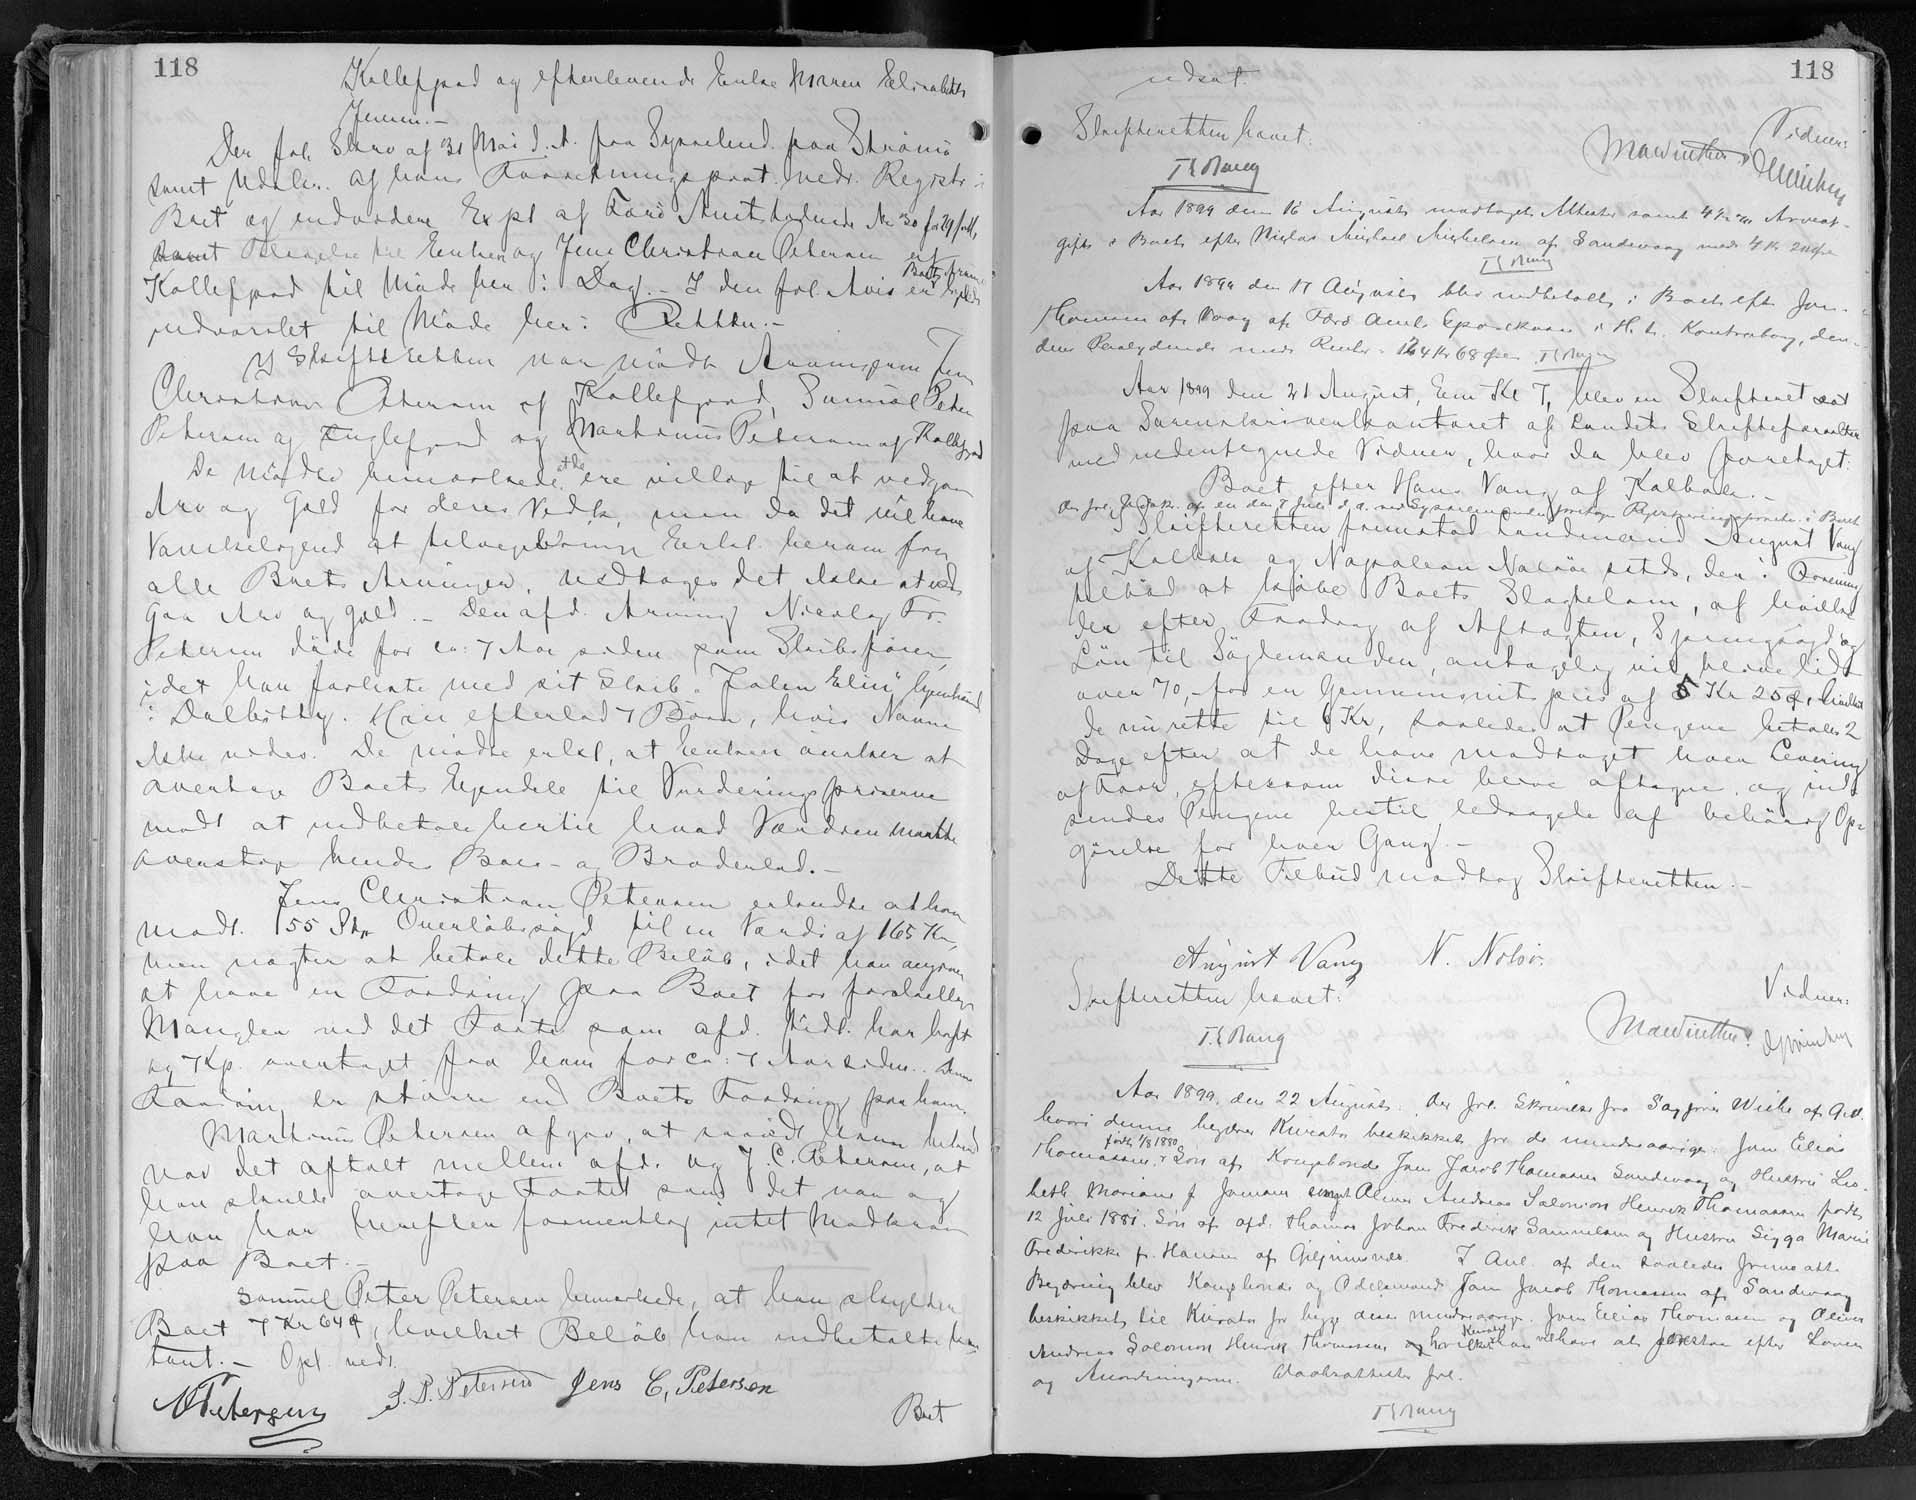 118
Kollefjord og efterlevende Enke Maren Elisabeth
Jensen.-
Der frl. Skriv af 31 Mai d. A. fra Sysselmd. paa Strømø
samt Udskr. af hans Forretningsprot. vedr. Registr i
Boet og endvidere Expl af Færø Amtstidende No 30 for 29 juli,
samt til Enken og Jens Christian Petersen af
Kollefjord til Møde her i Dag. - I den frl. Avis er Boets Arvinger
indvarslet til Møde her i Retten.-
I Skifteretten var mødt Arvingerne Jens
Christian Petersen af Kollefjord, Samuel Peter
Petersen af Fuglefjord og Marthinus Petersen af Kollefjord
De mødte bemærkede at de ere villige til at vedgaa
Arv og Gæld for deres Vedk, men da det vil have
Vanskelighed at tilveiebringe Erkl. herom fra
alle Boets Arvinger, vedtages det ikke at ved-
gaa Arv og Gæld. - Den afd. Arving Nicolay Fr.
Petersen døde for ca: 7 Aar siden som Skibsfører,
idet han forliste med sit Skib "Jalen Elin" hjemhørende
i Dalbotty. Han efterlod 7 Børn, hvis Navne
ikke vides. De mødte erkl, at Enken ønsker at
overtage Boets Ejendele til Vurderingspriserne
modt at indbetale hertil hvad Værdien maatte
overstige hendes Boes- og Broderlod.-
Jens Christian Petersen erkendte at han
modt. 155 Pd Overløbsuld til en Værdi af 165 Kr,
men nægter at betale dette Beløb, idet han angiver
at have en Fordring paa Boet for forskellige
Mangler ved det Fæste som afd. tidl. har haft
og J Kp. overtaget fra ham for ca: 7 Aar siden. Denne
Fordring er større end Boets Fordring paa ham.
Marthinus Petersen afgav, at saavidt ham bekend
var det aftalt mellem afd. og J. C. Petersen, at
han skulde overtage Fæstet som det var og
han har herefter formentlig intet Modkrav
paa Boet.-
Samuel Peter Petersen bemærkede, at han skylder
Boet 7 Kr 64 ø, hvilket Beløb han indbetalte kon-
tant.- Opl. vedt.
MPetersen S. P. Petersen Jens C, Petersen
Boet
118
udsat.
Skifteretten hævet.
Vidner:
MaWinther
Aar 1899 den 16 August modtaget Attester samt 4 Kr Arveaf-
gift i Boet efter Niclas Michael Michelsen af Sandevaag med 4 Kr 20 Øre
Aar 1899 den 17 August blev indbetalt i Boet eft. Jon.
Thomsen af Vaag af Færø Amts Sparekasse i H. t. Kontrabog, den-
dens Paalydende med Renter - 124 Kr 68 Øre
Aar 1899 den 21 August, Em Kl 7, blev en Skifteret sat
paa Sorenskriverkontoret af Landets Skifteforvalter
med undertegnede Vidner, hvor da blev foretaget:
Boet efter Hans Vang af Kalbak.-
I Skifteretten fremstod Landmand August Vang
af Kalbak og Napoleon Nolsøe sstds, der i Forening
tilbød at købe Boets Slagtelam, af hvilke
der efter Fradrag af Aftægten, og
Løn til Søgtemanden, antagelig vil blive lidt
over 70,- for en Gennemsnitspris af 5 Kr 25 Ø, hvilket
de nu rette til 6 Kr, saaledes at Pengene betales 2
Dage efter at de have modtaget hver Levering
af Faar, eftersom disse blive aftagne, og ind-
sendes Pengene hertil ledsagede af behørig Op-
gørelse for hver Gang.-
Dette Tilbud modtog Skifteretten.-
August Vang N. Nolsø.
Skifteretten hævet:
Vidner:
MaWinther.
Aar 1899. den 22 August: Der frl. Skrivelse fra Sagfører Wiehe af Gd.
hvori denne begærer Kurator beskikket for de mindreaarige: Jon Elias
Thomassen, født 1/8 1880, Søn af Kongsbonde Jon Jacob Thomassen Sandevaag og Hustru Lis-
beth Mariane f. Joensen samt Oliver Andreas Salomon Henrik Thomassen født
12 Juli 1881. Søn af afd. Thomas Johan Frederik Samuelsen og Hustru Sigga Marie
Fredrikke f. Hansen af Gjeljumnes. I Anl. af den saaledes fremsatte
Begæring blev Kongsbonde og Odelsmand Jon Jacob Thomassen af Sandevaag
beskikket til Kurator for begge disse mindreaarige. Jon Elias Thomassen og Oliver
Andreas Salomon Henrik Thomassen hvilket Kuratel han vil have at forestaa efter Loven
og Anordningerne.